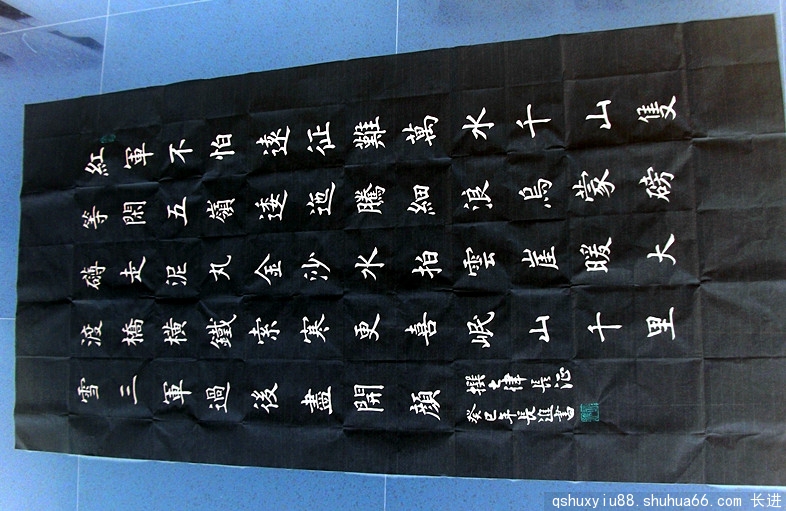 紅軍不怕遠征難萬水千山隻
等閑五嶺逶迤騰細浪烏蒙磅
礴走泥丸金沙水拍雲崖暖大
渡橋橫鐵索寒更喜岷山千里
雪三軍過後盡開顏
律長征
癸巳年長進書
qshuxyiu88.shuhua66.com 长进